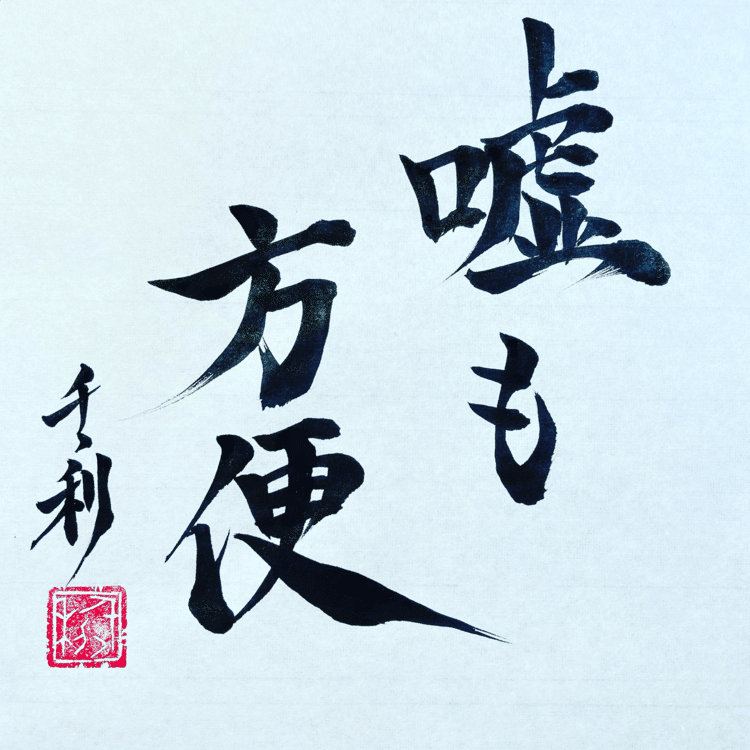 嘘も
方便
千利